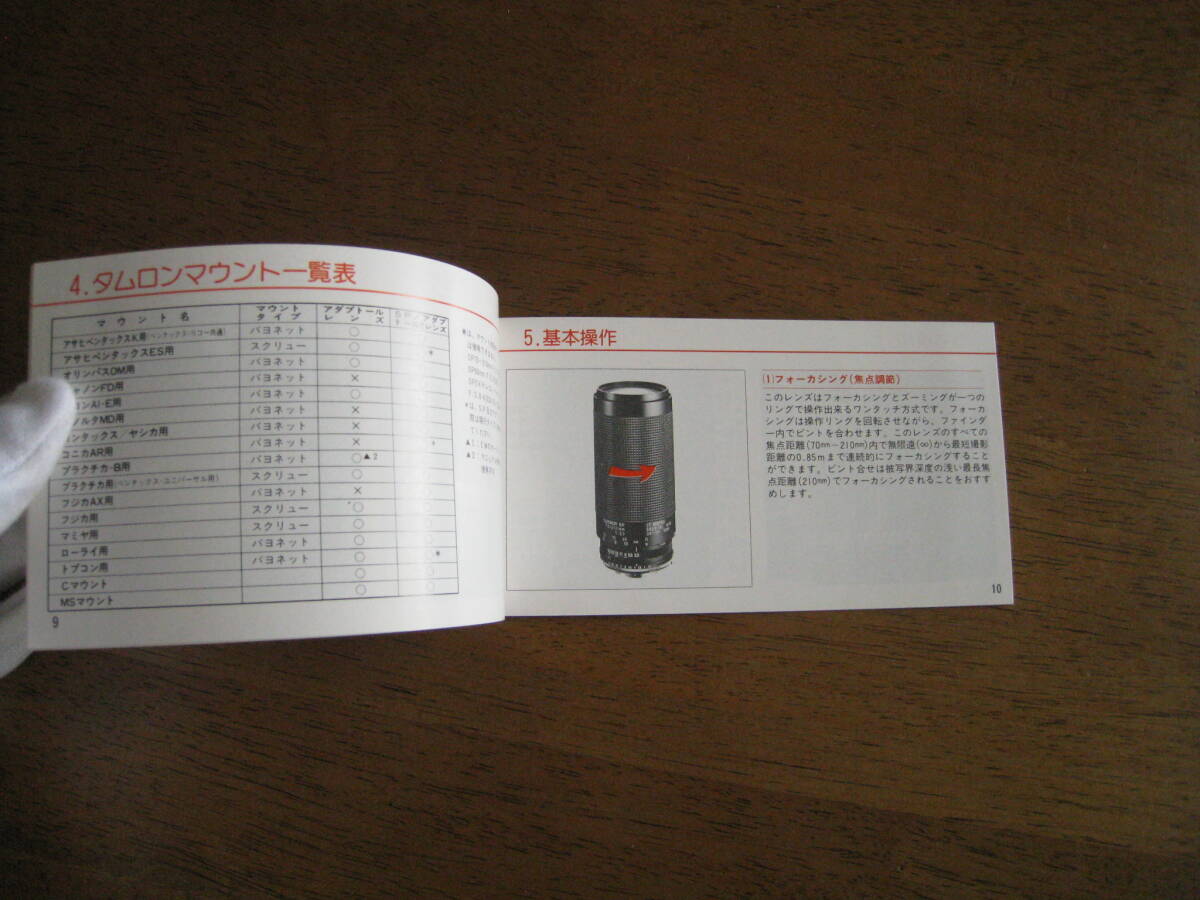 4.タムロンマウント一覧表
マウント名 マウントタイプ アダプトールレンズ
アサヒペンタックスK用(ペンタックス・リコー共通) バヨネット ○
アサヒペンタックスES用 スクリュー ○ *
オリンパスOM用 バヨネット ○
キャノンFD用 バヨネット ×
コンAI-E用 バヨネット ○
ルタMD用 バヨネット ×
ンタックス/ヤシカ用 バヨネット ×
コニカAR用 バヨネット × *
プラクチカ-B用 バヨネット ○▲2
プラクチカ用(ペンタックス・ユニバーサル用) スクリュー ○
フジカAX用 バヨネット ×
フジカ用 スクリュー ○
マミヤ用 スクリュー ○
ローライ用 バヨネット ○
トプコン用 バヨネット ○ *
Cマウント ○
MSマウント ○
9
5.基本操作
(1)フォーカシング(焦点調節)
このレンズはフォーカシングとズーミングが一つの
リングで操作出来るワンタッチ方式です。フォーカ
シングは操作リングを回転させながら、ファインダ
ー内でピントを合わせます。このレンズのすべての
焦点距離(70mm〜210mm)内で無限遠(∞)から最短撮影
距離の0.85mまで連続的にフォーカシングすること
ができます。ピント合せは被写界深度の浅い最長焦
点距離(210mm)でフォーカシングされることをおすす
めします。
10